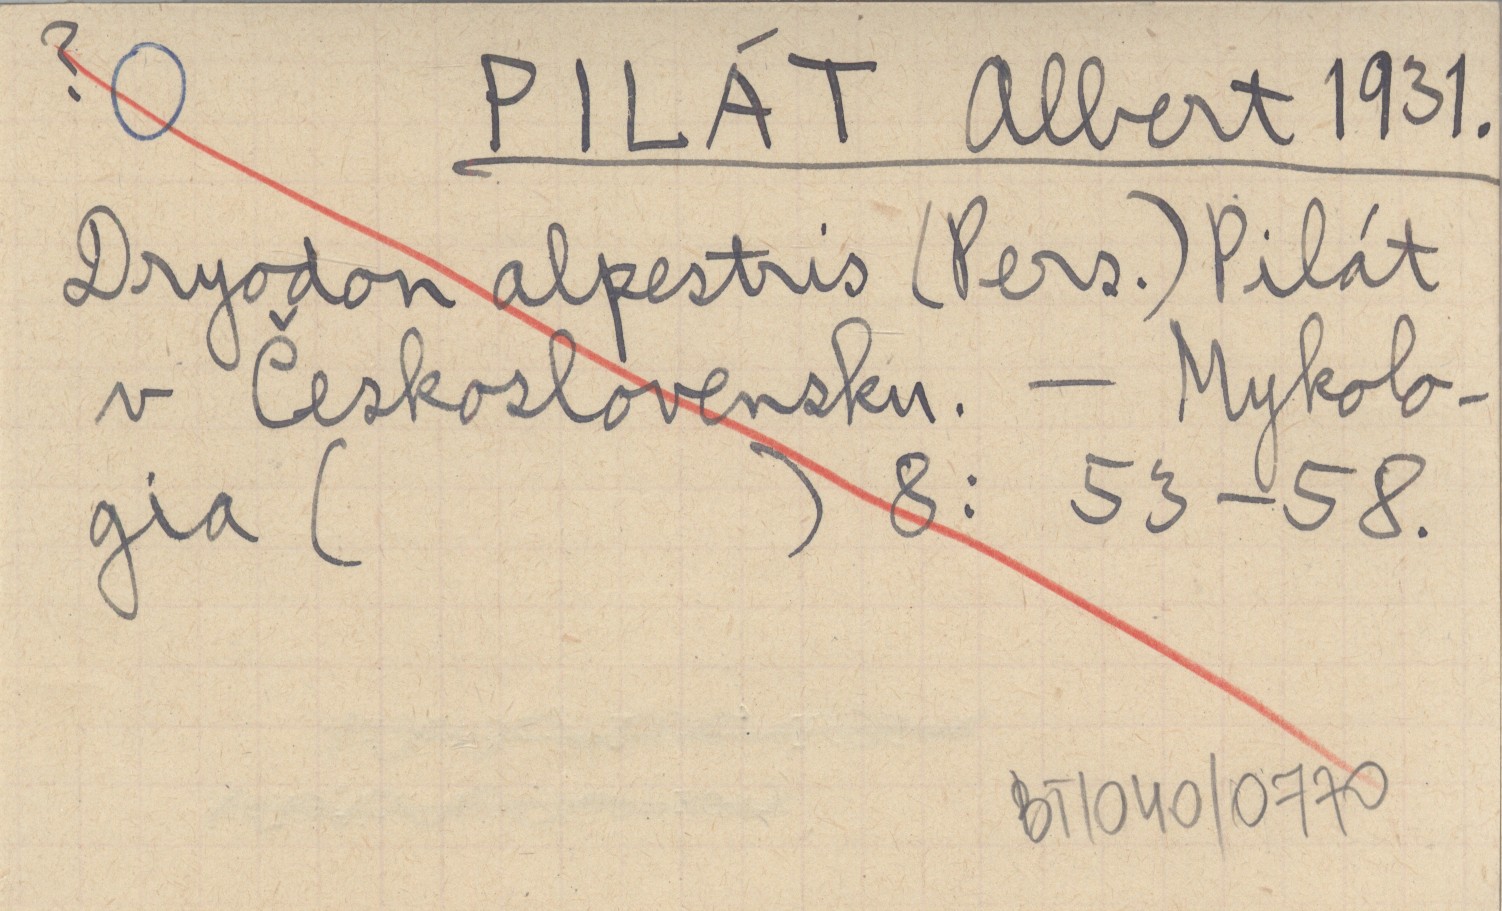 ?
PILÁT Albert 1931.
Dryodon alpestris (Pers.) Pilát
v Československu. — Mykolo-
gia (                ) 8: 53-58.
BT/040/0770